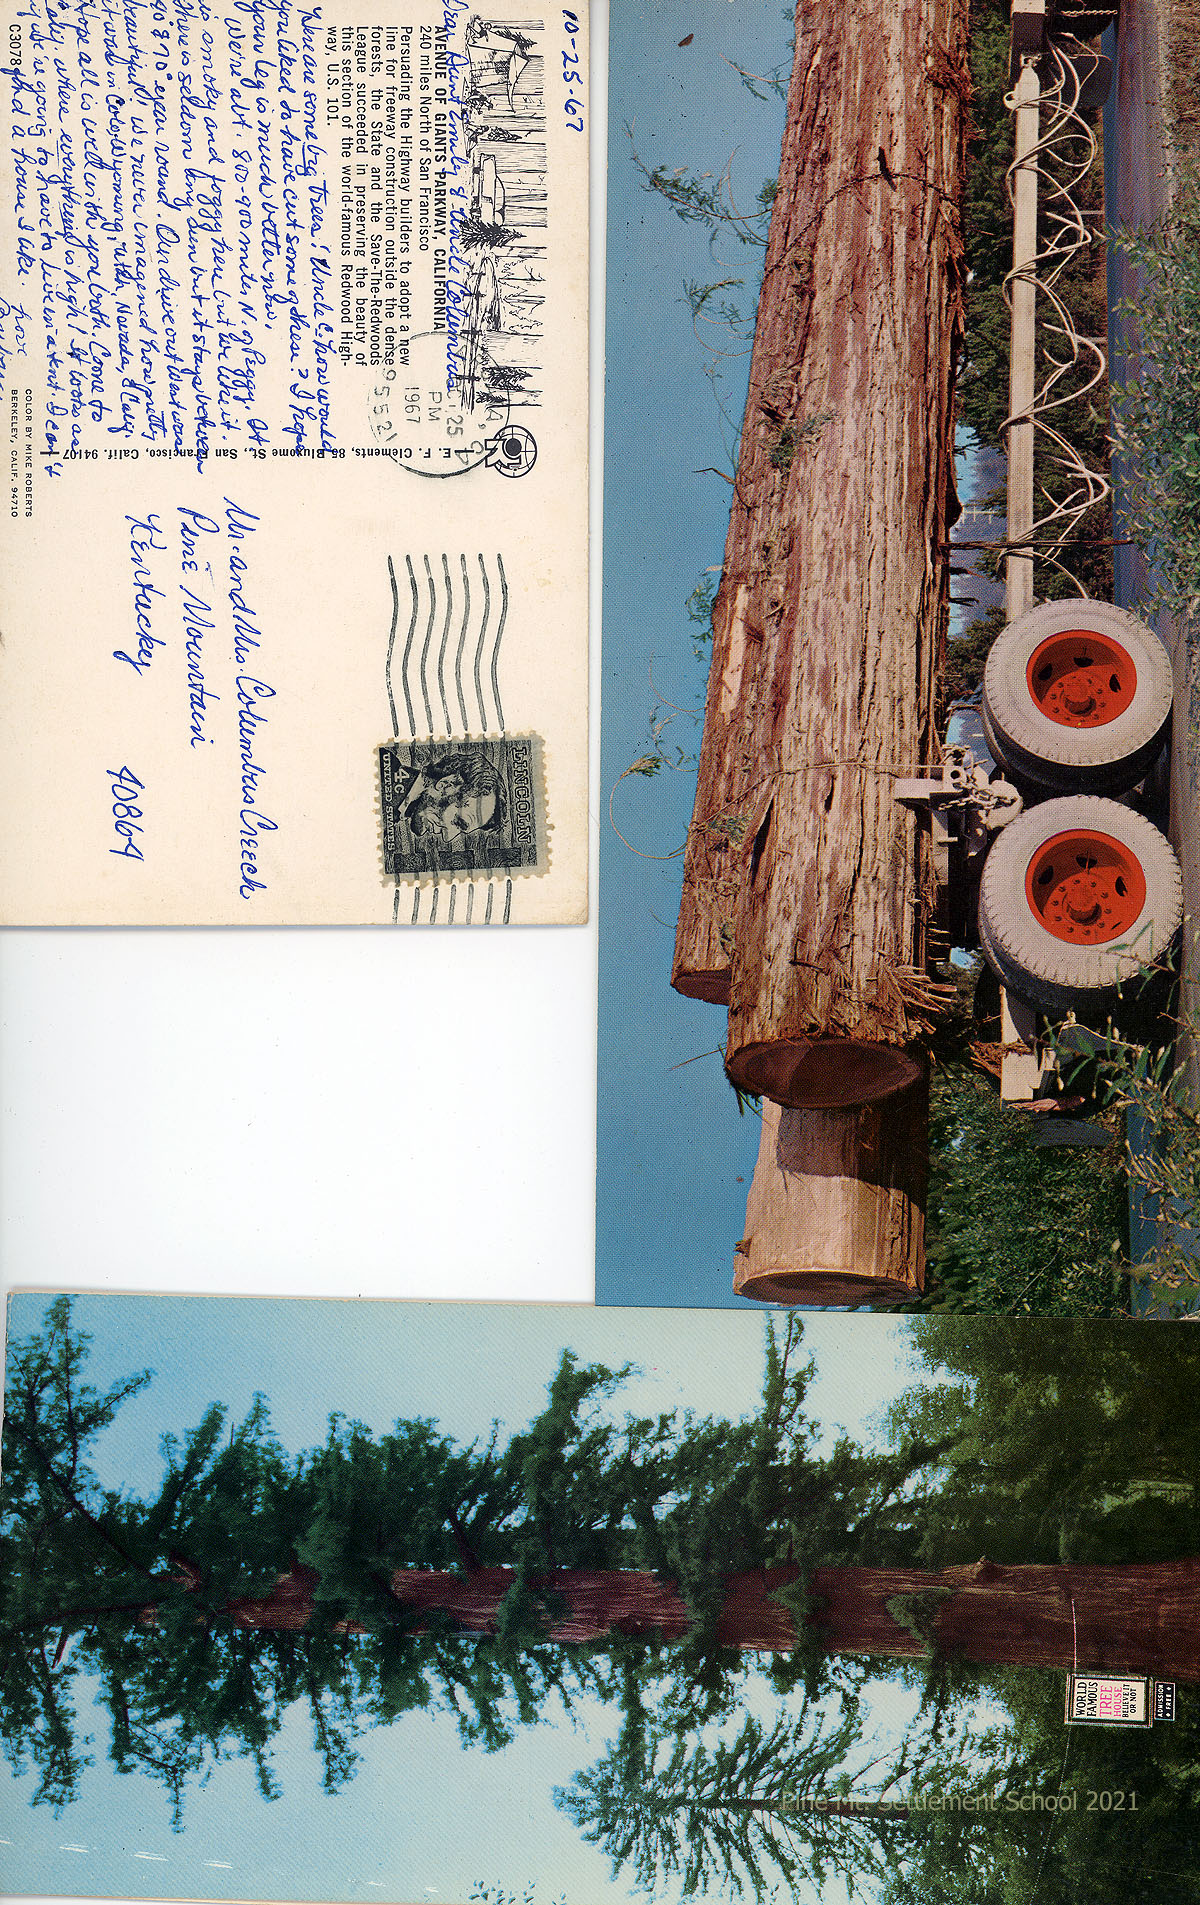 10-25-67
AVENUE OF GIANTS PARKWAY, CALIFORNIA
240 miles North of San Francisco
Persuading the Highway builders to adopt a new
line for freeway construction outside the dense
forests, the State and the Save-The-Redwoods
League succeeded in preserving the beauty of
this section of the world-famous Redwood High-
way, U.S. 101.
Dear Aunt Emily & Uncle Columbus
Here are some big trees! Uncle C. how would
you liked to have cut some of them? I hope
your leg is much better now.
We're abt. 800-900 miles N. of Peggy. It
is smoky and foggy here but we like it.
There is seldom any sun but it stays between
40 & 70° year round. Our drive out West was
beautiful, we never imagened how pretty
it was in Colo, Wyoming, Utah, Nevada, & Calif.
Hope all is well with you both. Come to
Calif. where everything is high! It looks as
if we're going to have to live in a tent. I can't
find a house I like. Love
C3078
E. F. Clements, 85 Bluxome St., San Francisco, Calif. 94107
COLOR BY MIKE ROBERTS
BERKELEY, CALIF. 94710
25
PM
1967
9552
Mr. and Mrs. Columbus Creech
Pine Mountain
Kentucky
40864
LINCOLN
4c
UNITED STATES
WORLD
FAMOUS
TREE
HOUSE
BELIEVE IT
OR NOT
ADMISSION
FREE
Pine Mt. Settlement School 2021